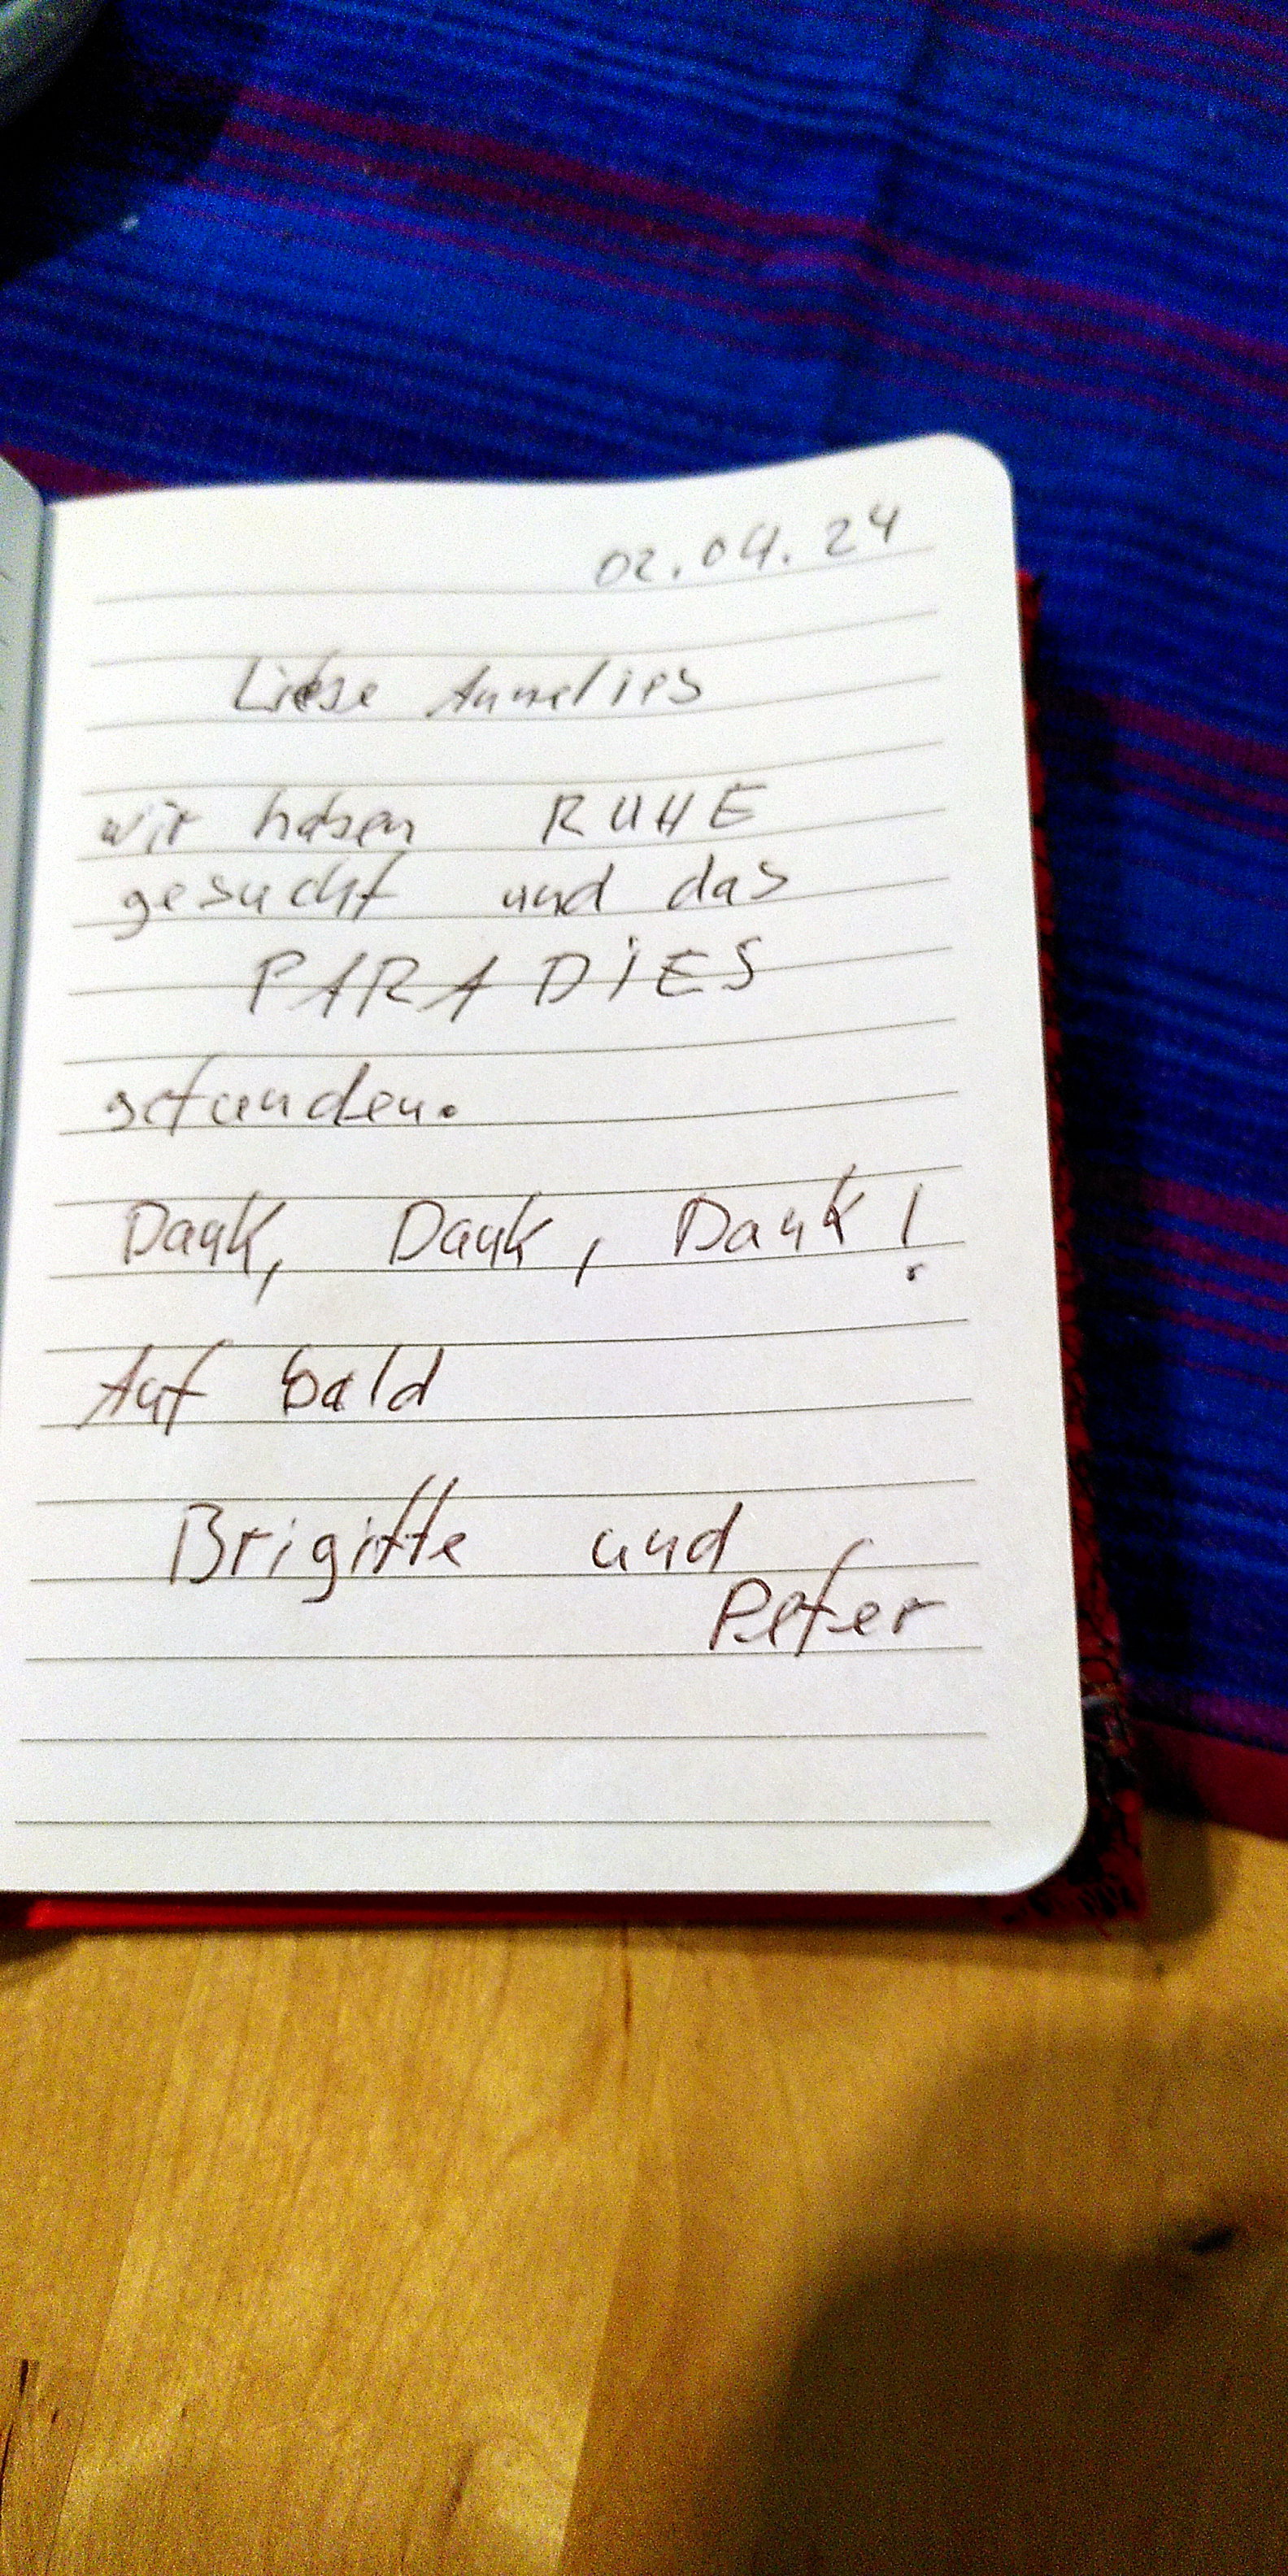 02.04.24
Liebe Annelies
wir haben RUHE
gesucht und das
PARADiES
gefunden.
Dank, Dank, Dank!
Auf bald
Brigitte und
Peter